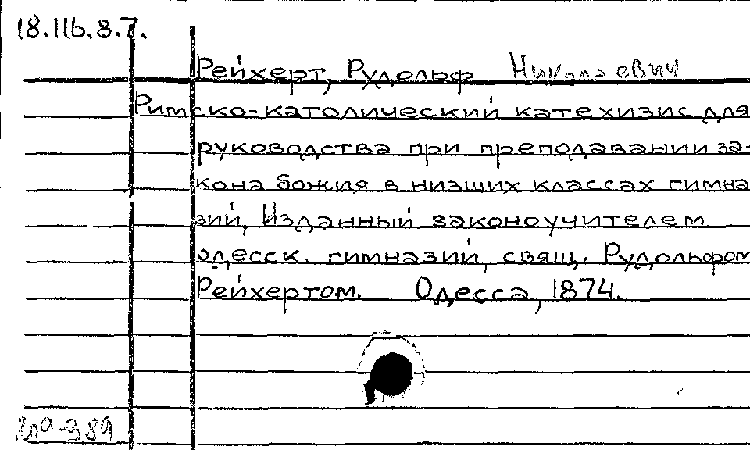 18.116.8.7.
Рейхерт, Рудольф Николаевич
Римско-католический катехизис для
руководства при преподавании за-
кона божия в низших классах гимна
зий, Изданный законоучителем
одесск. гимназий, свящ. Рудольфом
Рейхертом. Одесса, 1874.